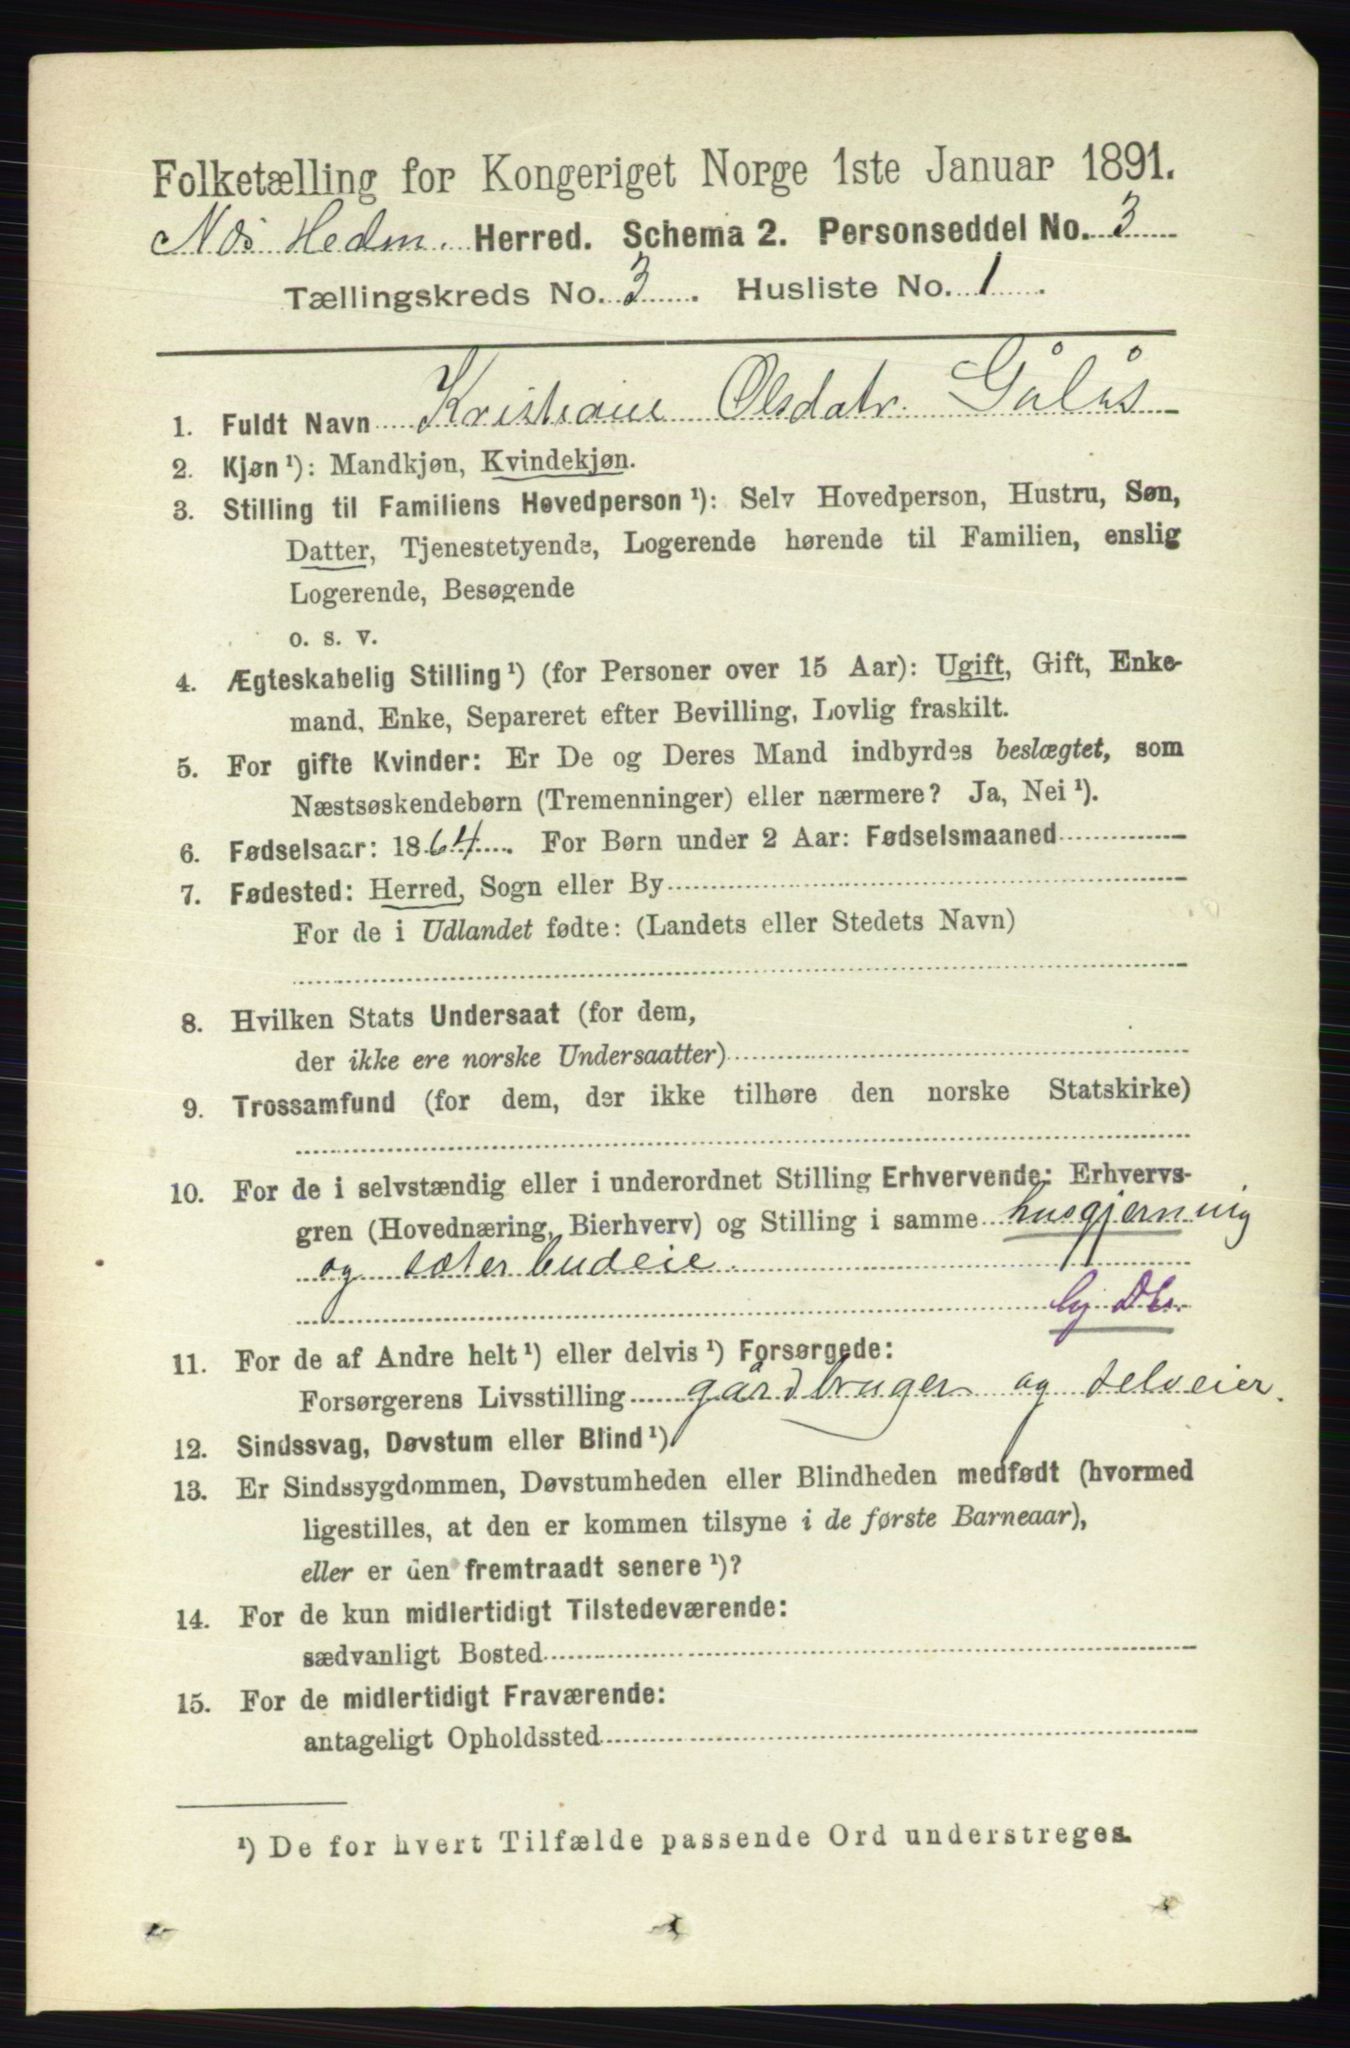 Folketælling for Kongeriget Norge 1ste Januar 1891.
Nes Hedm. Herred. Schema 2. Personseddel No. 3
Tællingskreds No. 3. Husliste No. 1.
1. Fuldt Navn Kristiane Olsdatr. Gålås
2. Kjøn ¹): Mandkjøn, Kvindekjøn.
3. Stilling til Familiens Hovedperson ¹): Selv Hovedperson, Hustru, Søn,
Datter, Tjenestetyende, Logerende hørende til Familien, enslig
Logerende, Besøgende
o. s. v.
4. Ægteskabelig Stilling ¹) (for Personer over 15 Aar): Ugift, Gift, Enke-
mand, Enke, Separeret efter Bevilling, Lovlig fraskilt.
5. For gifte Kvinder: Er De og Deres Mand indbyrdes beslægtet, som
Næstsøskendebørn (Tremenninger) eller nærmere? Ja, Nei ¹).
6. Fødselsaar: 1864. For Børn under 2 Aar: Fødselsmaaned
7. Fødested: Herred, Sogn eller By
For de i Udlandet fødte: (Landets eller Stedets Navn)
8. Hvilken Stats Undersaat (for dem,
der ikke ere norske Undersaatter)
9. Trossamfund (for dem, der ikke tilhøre den norske Statskirke)
10. For de i selvstændig eller i underordnet Stilling Erhvervende: Erhvervs-
gren (Hovednæring, Bierhverv) og Stilling i samme husgjerning
og sæterbudeie.
11. For de af Andre helt ¹) eller delvis ¹) Forsørgede:
Forsørgerens Livsstilling gårdbruger og selveier.
12. Sindssvag, Døvstum eller Blind ¹).
13. Er Sindssygdommen, Døvstumheden eller Blindheden medfødt (hvormed
ligestilles, at den er kommen tilsyne i de første Barneaar),
eller er den fremtraadt senere ¹)?
14. For de kun midlertidigt Tilstedeværende:
sædvanligt Bosted
15. For de midlertidigt Fraværende:
antageligt Opholdssted
¹) De for hvert Tilfælde passende Ord understreges.